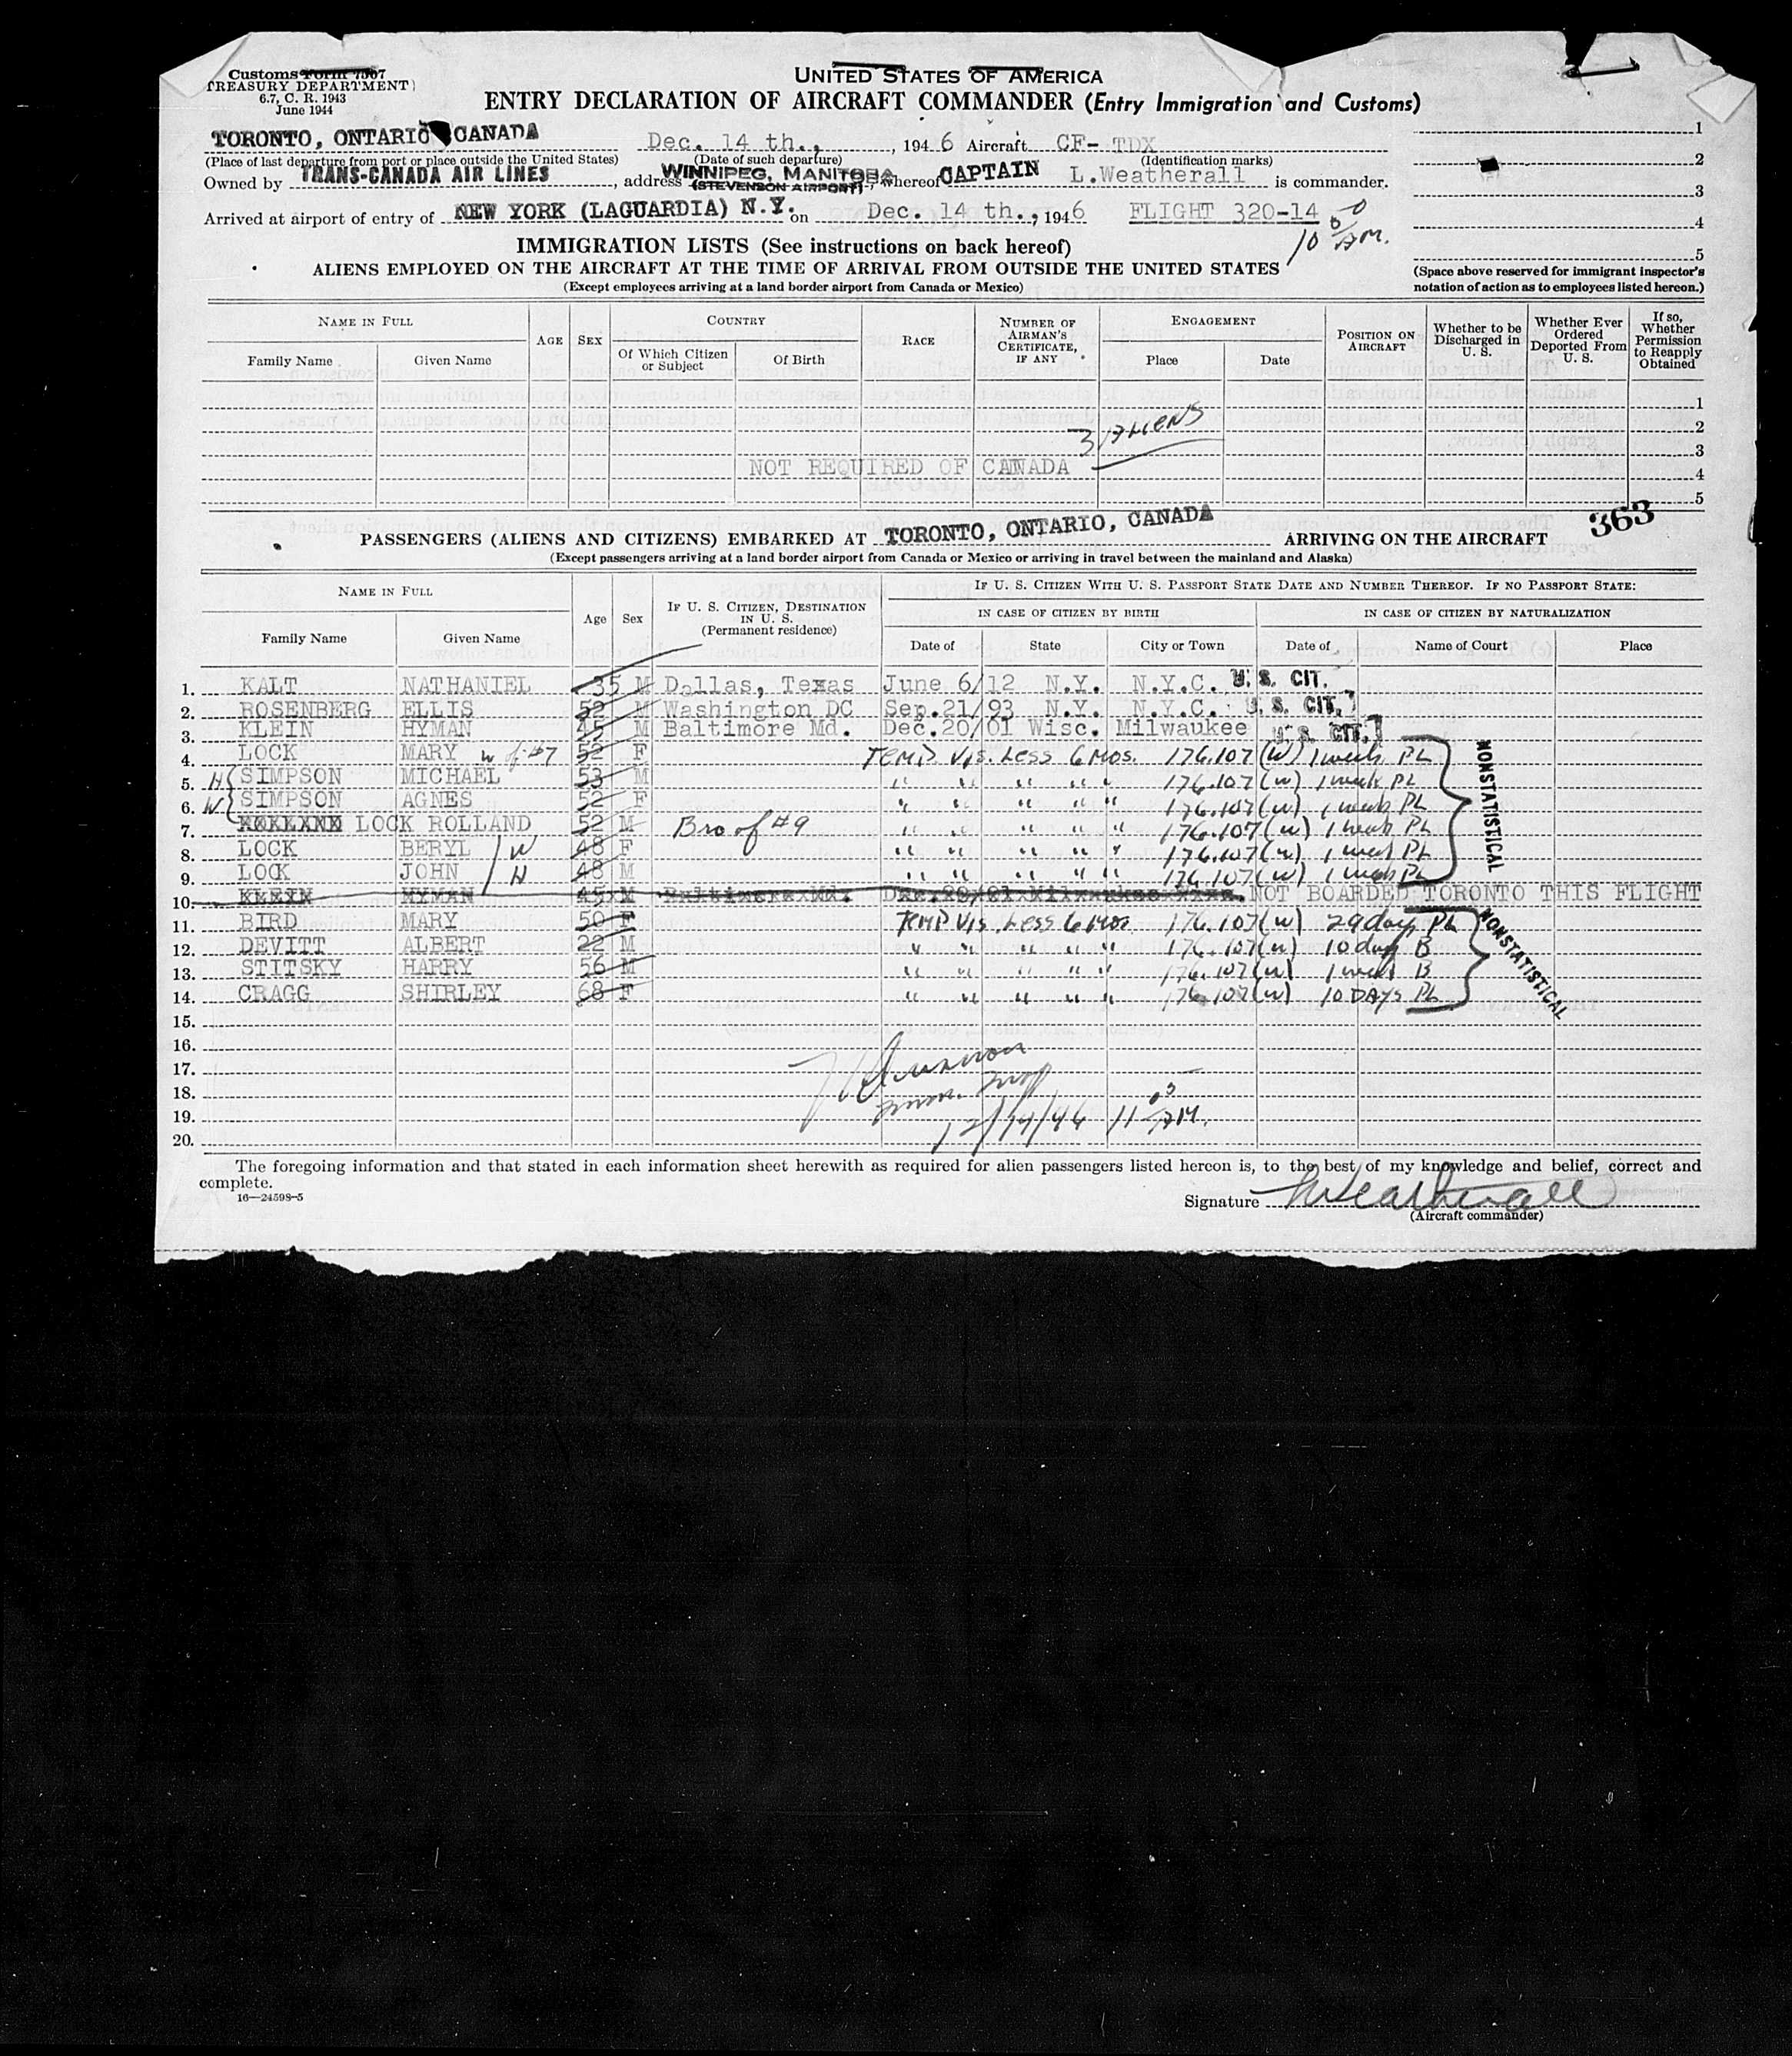 Customs Form 7507
TREASURY DEPARTMENT
6.7, C. R. 1943
June 1944
UNITED STATES OF AMERICA
ENTRY DECLARATION OF AIRCRAFT COMMANDER (Entry Immigration and Customs)
TORONTO, ONTARIO CANADA Dec. 14 th., , 194 6 Aircraft CF- TDX
(Place of last departure from port or place outside the United States) (Date of such departure) (Identification marks)
Owned by TRANS-CANADA AIR LINES, address WINNIPEG, MANITOBA (STEVENSON AIRPORT), whereof CAPTAIN L.Weatherall is commander.
Arrived at airport of entry of NEW YORK (LAGUARDIA) N.Y. on Dec. 14 th., 1946 FLIGHT 320-14
10 50 AM.
1
2
3
4
5
(Space above reserved for immigrant inspector's
notation of action as to employees listed hereon.)
IMMIGRATION LISTS (See instructions on back hereof)
ALIENS EMPLOYED ON THE AIRCRAFT AT THE TIME OF ARRIVAL FROM OUTSIDE THE UNITED STATES
(Except employees arriving at a land border airport from Canada or Mexico)
NAME IN FULL AGE SEX COUNTRY RACE NUMBER OF AIRMAN'S CERTIFICATE, IF ANY ENGAGEMENT POSITION ON AIRCRAFT Whether to be Discharged in U. S. Whether Ever Ordered Deported From U. S. If so, Whether Permission to Reapply Obtained
Family Name Given Name Of Which Citizen or Subject Of Birth Place Date
1
2
3 ALIENS
3
NOT REQUIRED OF CANADA 4
5
363
PASSENGERS (ALIENS AND CITIZENS) EMBARKED AT TORONTO, ONTARIO, CANADA ARRIVING ON THE AIRCRAFT
(Except passengers arriving at a land border airport from Canada or Mexico or arriving in travel between the mainland and Alaska)
NAME IN FULL Age Sex IF U. S. CITIZEN, DESTINATION IN U. S. (Permanent residence) IF U. S. CITIZEN WITH U. S. PASSPORT STATE DATE AND NUMBER THEREOF. IF NO PASSPORT STATE:
IN CASE OF CITIZEN BY BIRTH IN CASE OF CITIZEN BY NATURALIZATION
Family Name Given Name Date of State City or Town Date of Name of Court Place
1. KALT NATHANIEL 35 M Dallas, Texas June 6/12 N.Y. N.Y.C. U. S. CIT.
2. ROSENBERG ELLIS 52 M Washington DC Sep.21/93 N.Y. N.Y.C. U. S. CIT.
3. KLEIN HYMAN 45 M Baltimore Md. Dec.20/01 Wisc. Milwaukee U. S. CIT.
4. LOCK MARY W of #7 52 F TEMP VIS. LESS 6 MOS. 176.107 (W) 1 week PL
5. H SIMPSON MICHAEL 53 M " " " " " 176.107 (W) 1 week PL
6. W SIMPSON AGNES 52 F " " " " " 176.107 (W) 1 week PL
7. LOCK ROLLAND 52 M Bro of #9 " " " " " 176.107 (W) 1 week PL
8. LOCK BERYL W 48 F " " " " " 176.107 (W) 1 week PL
9. LOCK JOHN H 48 M " " " " " 176.107 (W) 1 week PL
NONSTATISTICAL
10. KLEIN HYMAN 45 M Baltimore Md. Dec.20/01 Milwaukee Wisc. NOT BOARDED TORONTO THIS FLIGHT
11. BIRD MARY 50 F TEMP VIS LESS 6 MOS 176.107 (W) 29 days PL
12. DEVITT ALBERT 22 M " " " " " 176.107 (W) 10 days B
13. STITSKY HARRY 56 M " " " " " 176.107 (W) 1 week B
14. CRAGG SHIRLEY 68 F " " " " " 176.107 (W) 10 DAYS PL
NONSTATISTICAL
15.
16.
17.
18.
19. 12/14/46 11 05 AM.
20.
The foregoing information and that stated in each information sheet herewith as required for alien passengers listed hereon is, to the best of my knowledge and belief, correct and
complete.
16—24598-5
Signature LWeatherall
(Aircraft commander)